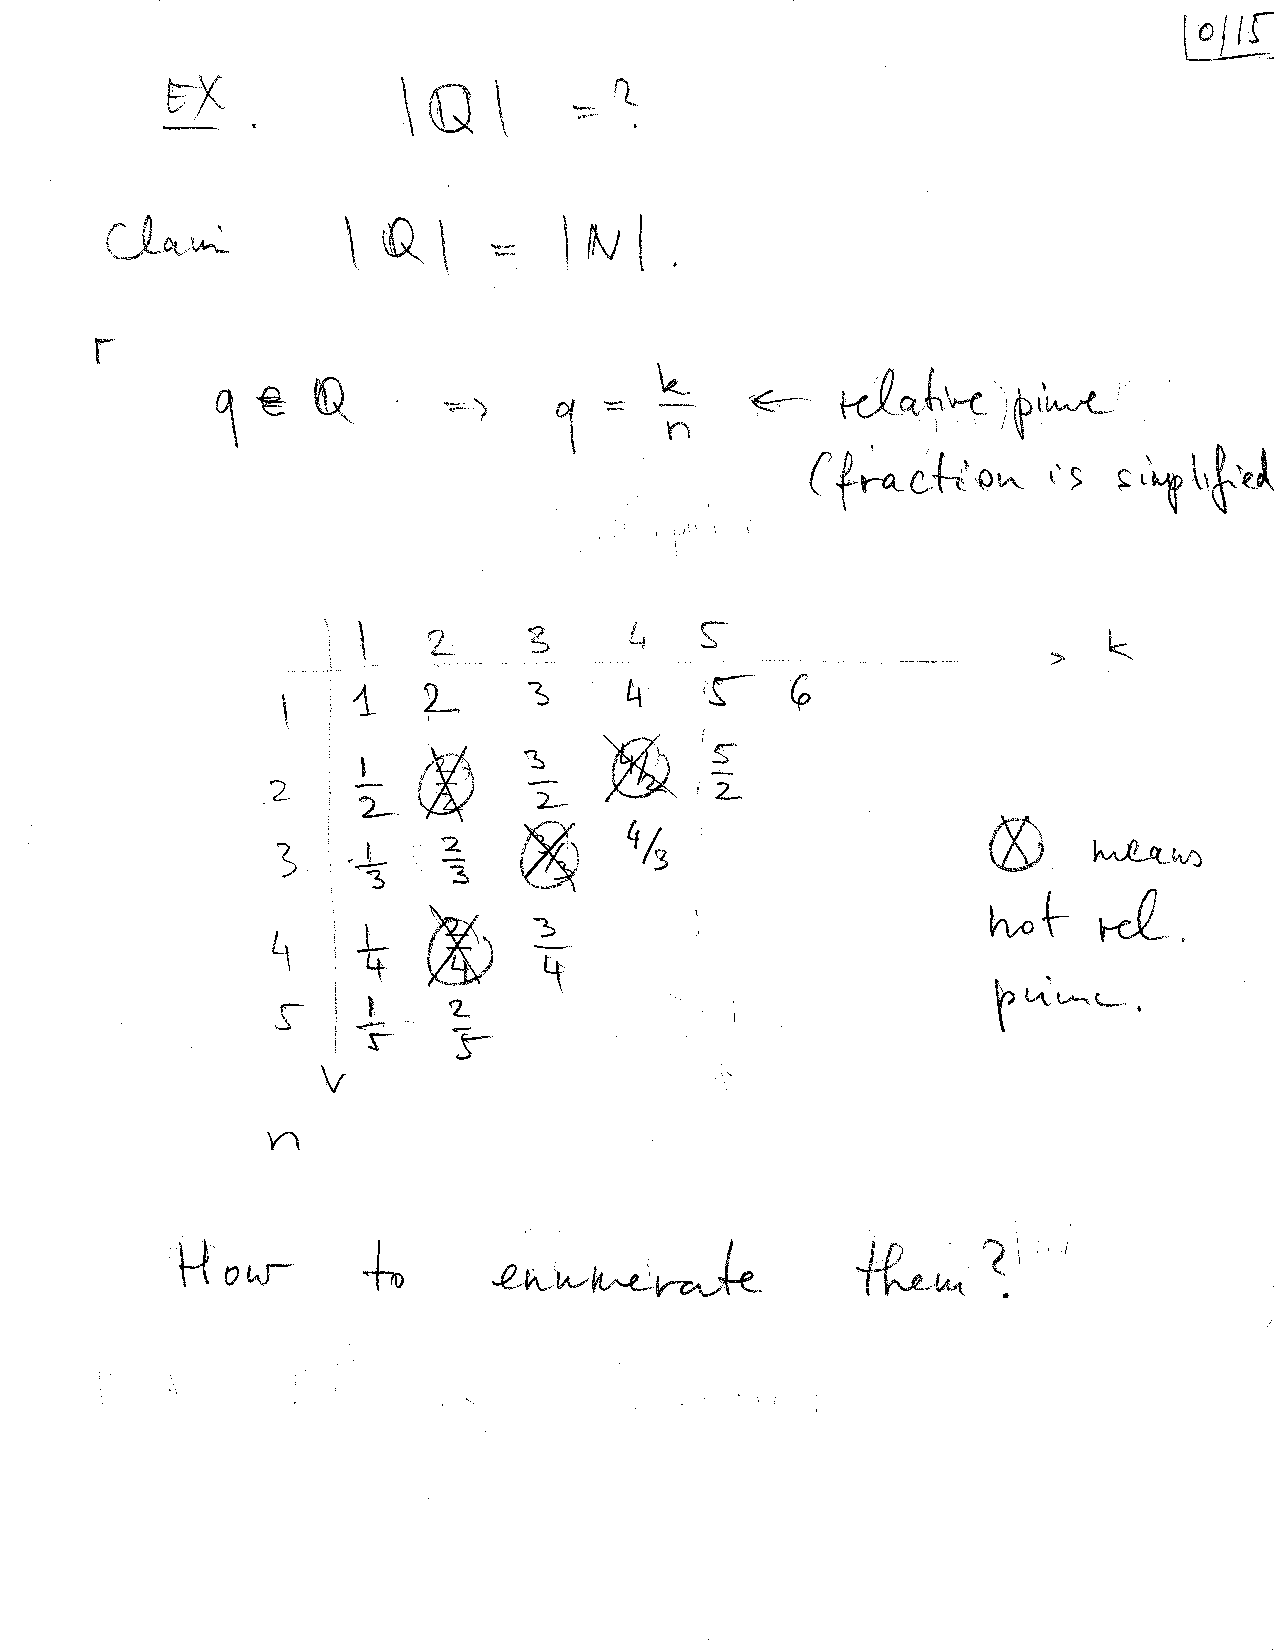 0/15
EX. |ℚ| = ?
Claim |ℚ| = |N|.
q ∈ ℚ ⇒ q = k/n ← relative prime
(fraction is simplified
1 2 3 4 5 > k
1 1 2 3 4 5 6
2 1/2 3/2 4/2 5/2
3 1/3 2/3 4/3
4 1/4 2/4 3/4
5 1/5 2/5
n
Ⓧ means
not rel.
prime.
How to enumerate them?